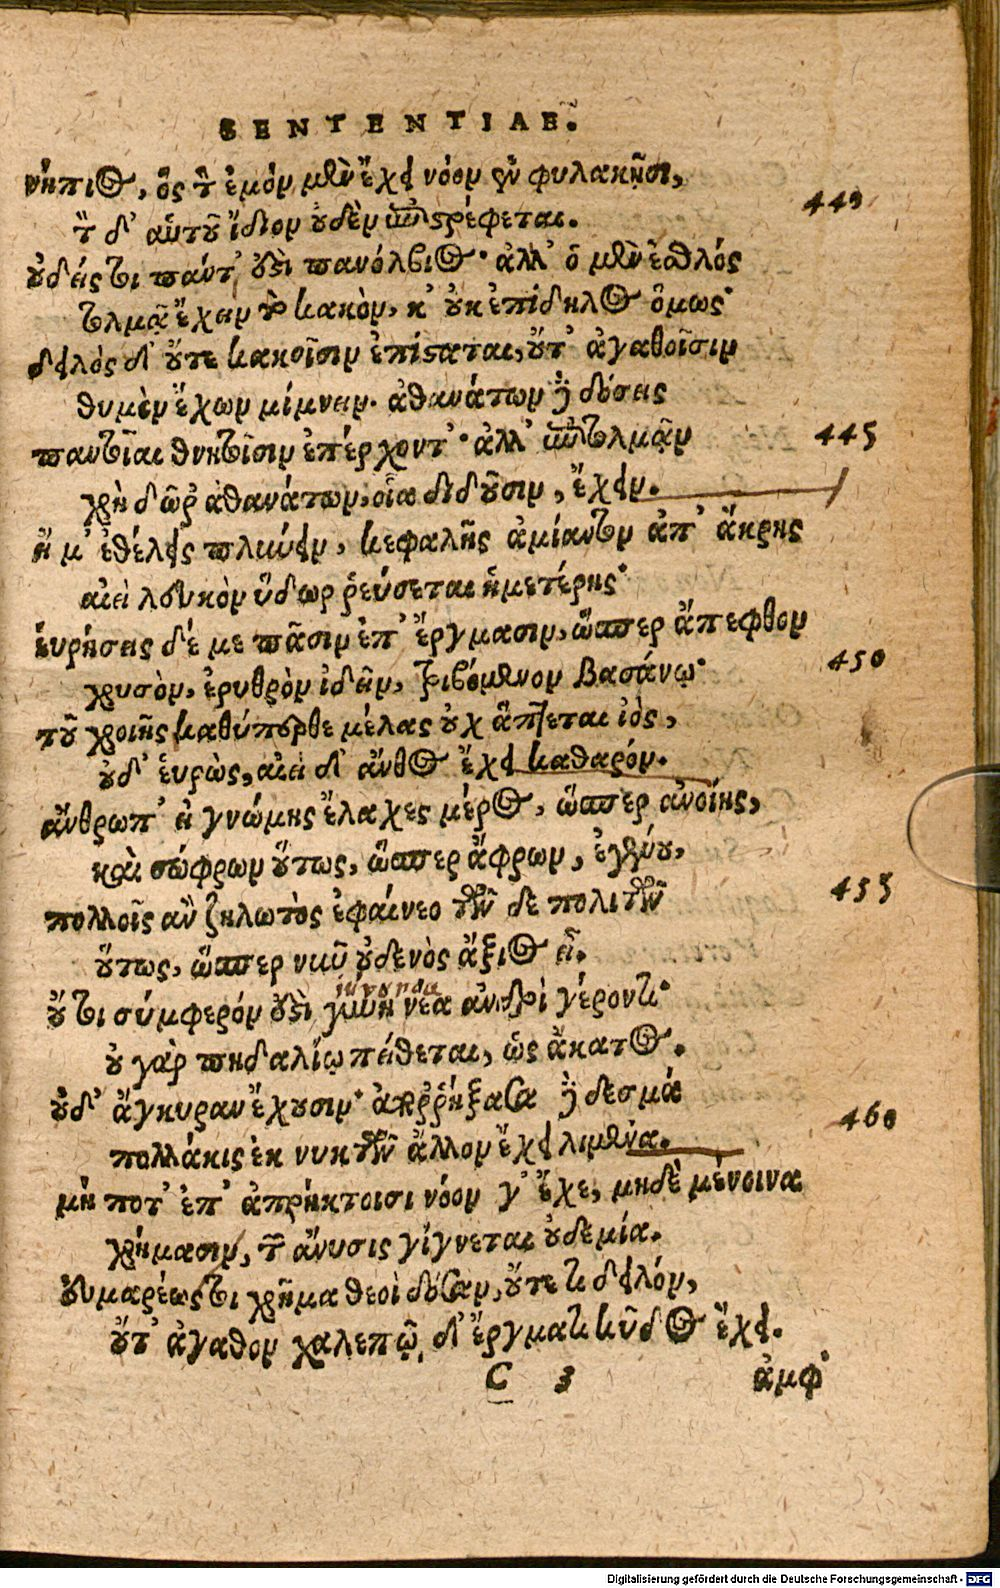 SENTENTIAE.
νήπιος, ὃς τ̀ ἐμὸν μὲν ἔχει νόον ἐν φυλακῇσι,
τ̀ δ' αὑτοῦ ἴδιον οὐδὲν ἐπιστρέφεται. 440
οὐδείς τοι πάντ' ὅστι πανόλβιος· ἀλλ' ὁ μὲν ἐσθλός
τολμᾷ ἔχειν τὸ κακὸν, κ' οὐκ ἐπίδηλος ὅμως·
δειλὸς δ' οὔτε κακοῖσιν ἐπίσταται, οὔτ' ἀγαθοῖσιν
θυμὸν ἔχων μίμνειν. ἀθανάτων ᾗ δόσεις
παντοῖαι θνητοῖσιν ἐπέρχοντ'· ἀλλ' ἐπιτολμᾷν 445
χρὴ δῶρ' ἀθανάτων, οἷα διδοῦσιν, ἔχειν.
ἤ μ' ἐθέλεις πλύνειν, κεφαλῆς ἀμίαντον ἀπ' ἄκρης
αἰεὶ λευκὸν ὕδωρ ῥεύσεται ἡμετέρης·
εὑρήσεις δέ με πᾶσιν ἐπ' ἔργμασιν, ὥσπερ ἄπεφθον
χρυσὸν, ἐρυθρὸν ἰδεῖν, τριβόμενον βασάνῳ· 450
τοῦ χροιῆς καθύπερθε μέλας οὐχ ἅπτεται ἰὸς,
οὐδ' εὑρὼς, αἰεὶ δ' ἄνθος ἔχει καθαρόν.
ἄνθρωπ' εἰ γνώμης ἔλαχες μέρος, ὥσπερ ἀνοίης,
καὶ σώφρων οὕτως, ὥσπερ ἄφρων, ἐγένου,
πολλοῖς ἂν ζηλωτὸς ἐφαίνεο τῶν δε πολιτῶν 455
οὕτως, ὥσπερ νῦν οὐδενὸς ἄξιος εἶ.
iucunda
οὔ τοι σύμφερόν ὅστι γυνὴ νέα ἀνδρὶ γέροντι·
οὐ γὰρ πηδαλίῳ πείθεται, ὡς ἄκατος.
οὐδ' ἄγκυραν ἔχουσιν· ἀπορρήξασα ᾗ δεσμά
πολλάκις ἐκ νυκτῶν ἄλλον ἔχει λιμένα. 460
μή ποτ' ἐπ' ἀπρήκτοισι νόον γ' ἔχε, μηδὲ μένοινα
χρήμασιν, τ̃ ἄνυσις γίγνεται οὐδεμία.
Εὐμαρέως τοι χρῆμα θεοὶ δόσαν, οὔτε τι δειλόν,
οὔτ' ἀγαθον χαλεπῷ δ' ἔργματι κῦδος ἔχει.
C 3 ἀμφ'
Digitalisierung gefördert durch die Deutsche Forschungsgemeinschaft - DFG